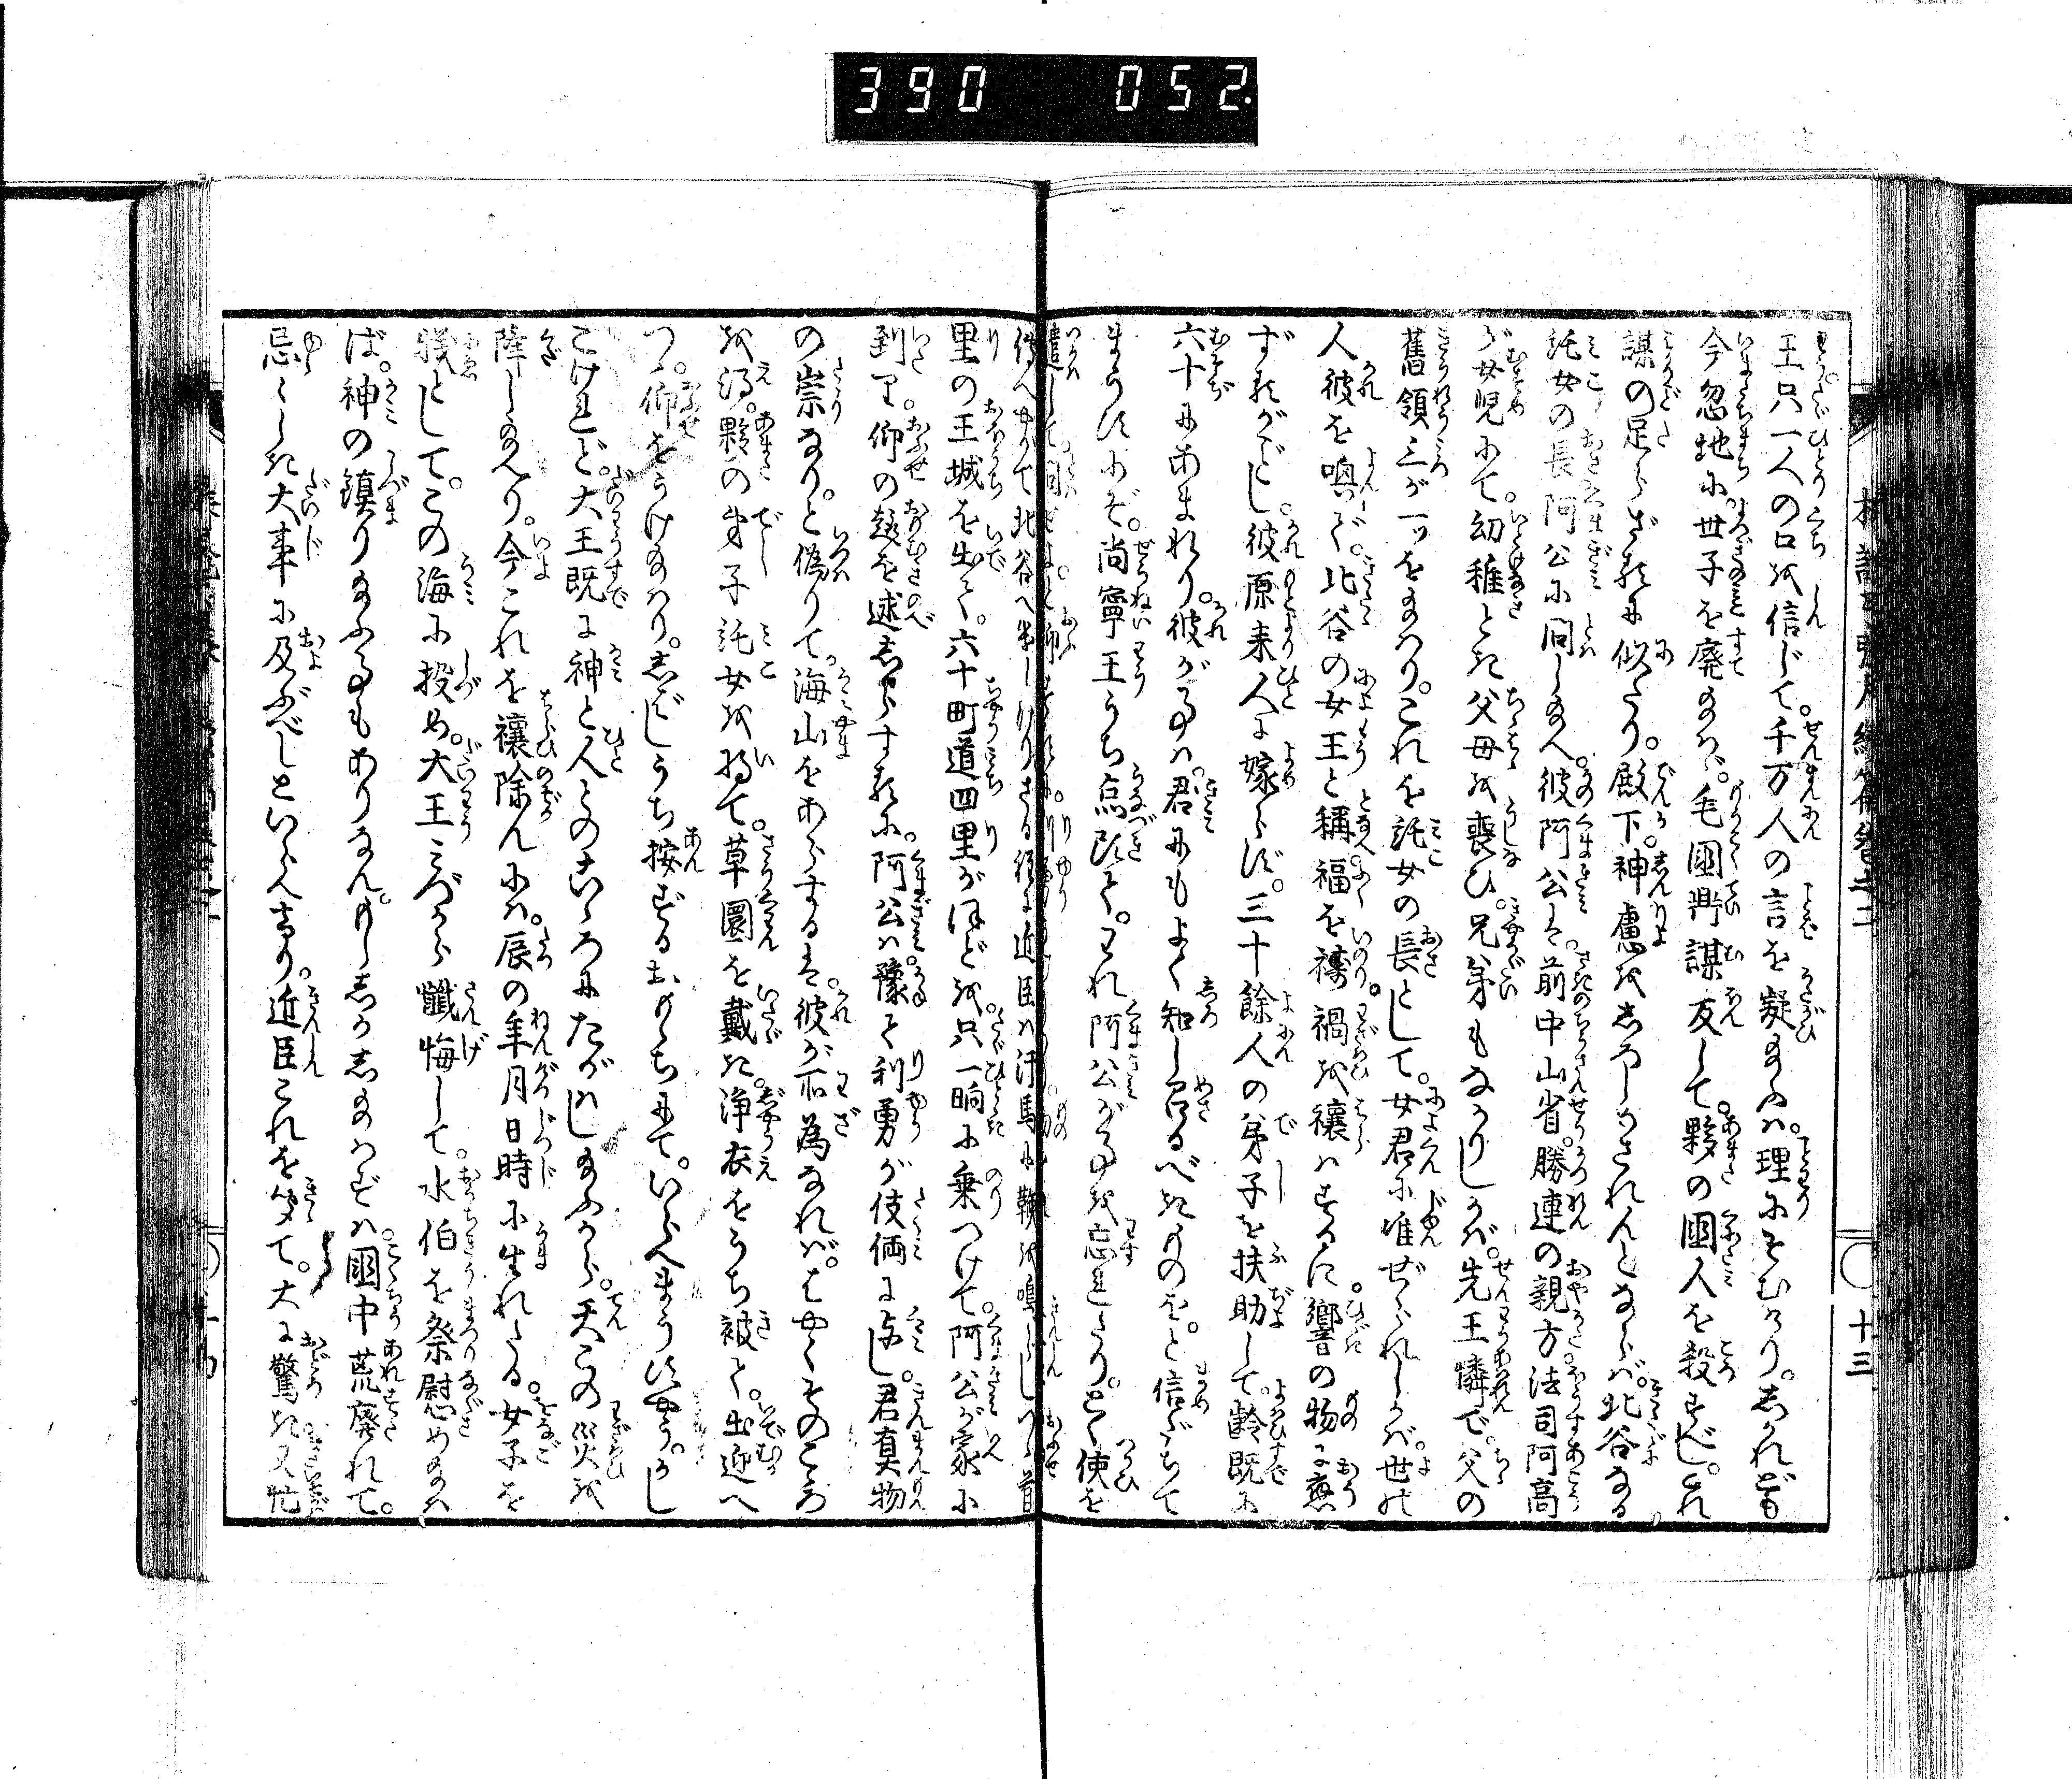 390 052.
王只一人の口を信じて。千万人の言を疑給ふは。理にそむけり。しかれども
今忽地に。世子を廃給はゞ。毛国鼎謀反して。夥の国人を殺すべし。これ
謀の足らざるに似たり。殿下。神慮をしろしめされんとならば。北谷なる
託女の長阿公に問し給へ。彼阿公は。前中山省。勝連の親方。法司阿高
が女児にて。幼稚とき父母を喪ひ。兄弟もなかりしかば。先王憐て。父の
旧領三が一ッを給はり。これを託女の長として。女君に准ぜられしかば。世の
人彼を喚て。北谷の女王と称。福を祷。禍を禳はするに。響の物に応
ずるがごとし。彼原来人に嫁らず。三十余人の弟子を扶助して。齢既に
六十にあまれり。彼が事は。君にもよく知し召るべきものを。と信だちて
まうすにぞ。尚寧王うち点頭て。われ阿公が事を忘れたり。とく使を
遣して問せよと仰するに。利勇
伝へやがて北谷へ遣しけりさる程に近臣は汗馬に鞭を鳴らしつゝ首
里の王城を出て。六十町道四里がほどを。只一晌に乗つけて。阿公が家に
到り。仰の趣を述しらするに。阿公は豫て利勇が伎倆に与し。君真物
の祟なり。と偽りて。海山をあらするは。彼が所為なれば。はやくそのこゝろ
を得。夥の弟子託女を将て。草圏を戴き。浄衣をうち被て。出迎へ
つゝ。仰をうけ給はり。しばしうち按ずるおもゝちにて。いらへまうすやう。かし
こけれど。大王既に神と人とのこゝろにたがはし給ふから。天この災を
降し給へり。今これを禳除んには。辰の年月日時に生れたる。女子を
牲として。この海に投め。大王みづから懺悔して。水伯を祭慰め給はゞ
ば。神の鎮り給ふ事もありなん。もししかし給はずは。国中荒廃れて。
忌々しき大事に及ぶべしといらへけり。近臣これを聞て。大に驚き又忙
十三